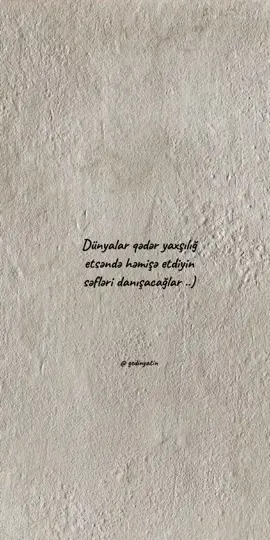 Dünyalar qədər yaxşılığ
etsəndə həmişə etdiyin
səfləri danışacağlar ..)
@ qedinyatin